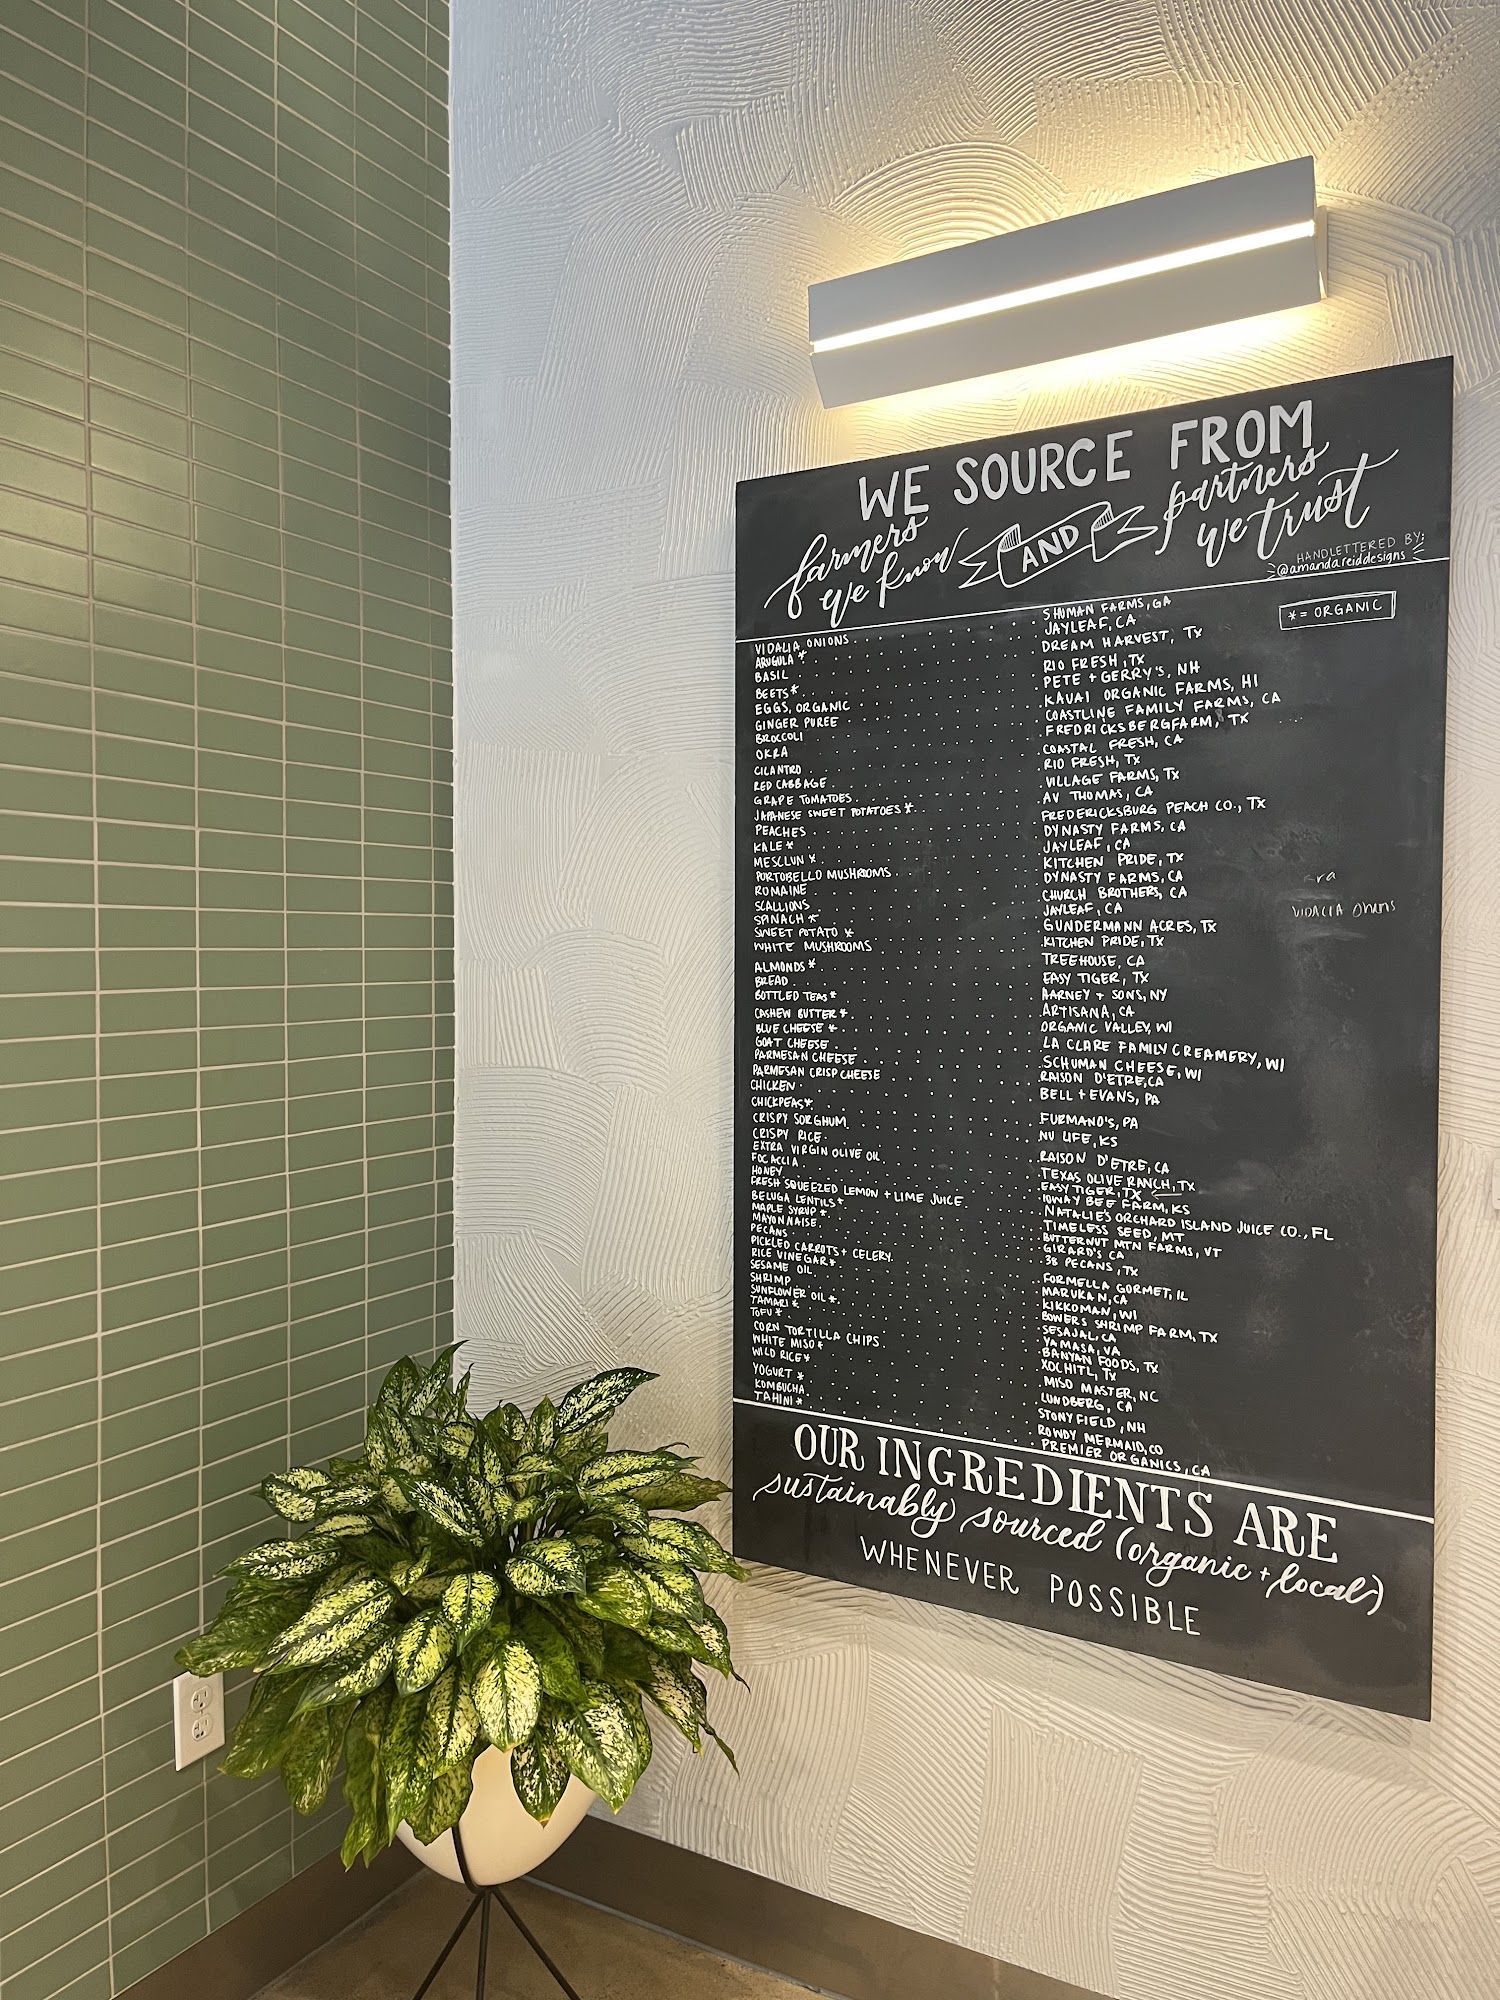 WE SOURCE FROM
farmers we know AND partners we trust
HANDLETTERED BY:
@amandareiddesigns
* = ORGANIC
VIDALIA ONIONS . . . . SHUMAN FARMS, GA
ARUGULA * . . . . JAYLEAF, CA
BASIL . . . . DREAM HARVEST, TX
BEETS * . . . . RIO FRESH, TX
EGGS, ORGANIC . . . . PETE + GERRY'S, NH
GINGER PUREE . . . . KAUAI ORGANIC FARMS, HI
BROCCOLI . . . . COASTLINE FAMILY FARMS, CA
OKRA . . . . FREDRICKSBERGFARM, TX
CILANTRO . . . . COASTAL FRESH, CA
RED CABBAGE . . . . RIO FRESH, TX
GRAPE TOMATOES . . . . VILLAGE FARMS, TX
JAPANESE SWEET POTATOES * . . . . AV THOMAS, CA
PEACHES . . . . FREDERICKSBURG PEACH CO., TX
KALE * . . . . DYNASTY FARMS, CA
MESCLUN * . . . . JAYLEAF, CA
PORTOBELLO MUSHROOMS . . . . KITCHEN PRIDE, TX
ROMAINE . . . . DYNASTY FARMS, CA
SCALLIONS . . . . CHURCH BROTHERS, CA
SPINACH * . . . . JAYLEAF, CA
SWEET POTATO * . . . . GUNDERMANN ACRES, TX
WHITE MUSHROOMS . . . . KITCHEN PRIDE, TX
ALMONDS * . . . . TREEHOUSE, CA
BREAD . . . . EASY TIGER, TX
BOTTLED TEAS * . . . . HARNEY + SONS, NY
CASHEW BUTTER * . . . . ARTISANA, CA
BLUE CHEESE * . . . . ORGANIC VALLEY, WI
GOAT CHEESE . . . . LA CLARE FAMILY CREAMERY, WI
PARMESAN CHEESE . . . . SCHUMAN CHEESE, WI
PARMESAN CRISP CHEESE . . . . RAISON D'ETRE, CA
CHICKEN . . . . BELL + EVANS, PA
CHICKPEAS * . . . . FURMANO'S, PA
CRISPY SORGHUM . . . . NU LIFE, KS
CRISPY RICE . . . . RAISON D'ETRE, CA
EXTRA VIRGIN OLIVE OIL . . . . TEXAS OLIVE RANCH, TX
FOCACCIA . . . . EASY TIGER, TX
HONEY . . . . IOWAY BEE FARM, KS
FRESH SQUEEZED LEMON + LIME JUICE . . . . NATALIE'S ORCHARD ISLAND JUICE CO., FL
BELUGA LENTILS * . . . . TIMELESS SEED, MT
MAPLE SYRUP * . . . . BUTTERNUT MTN FARMS, VT
MAYONNAISE . . . . GIRARD'S CA
PECANS . . . . 38 PECANS, TX
PICKLED CARROTS + CELERY . . . . FORMELLA GORMET, IL
RICE VINEGAR * . . . . MARUKAN, CA
SESAME OIL . . . . KIKKOMAN, WI
SHRIMP . . . . BOWERS SHRIMP FARM, TX
SUNFLOWER OIL * . . . . SESAJAL, CA
TAMARI * . . . . YAMASA, VA
TOFU * . . . . BANYAN FOODS, TX
CORN TORTILLA CHIPS . . . . XOCHITL, TX
WHITE MISO * . . . . MISO MASTER, NC
WILD RICE * . . . . LUNDBERG, CA
YOGURT * . . . . STONYFIELD, NH
KOMBUCHA . . . . ROWDY MERMAID, CO
TAHINI * . . . . PREMIER ORGANICS, CA
VIDALIA
OUR INGREDIENTS ARE
sustainably sourced (organic + local)
WHENEVER POSSIBLE